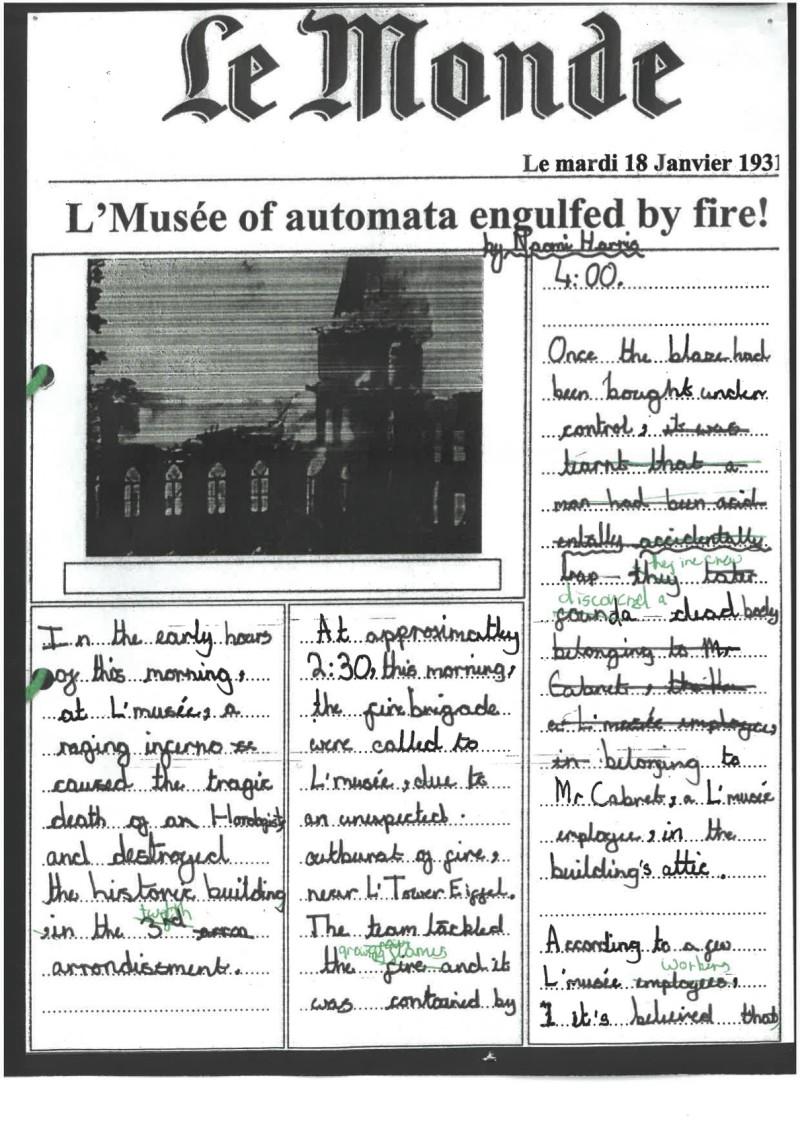 Le Monde
Le mardi 18 Janvier 1931
L'Musée of automata engulfed by fire!
by Naomi Harris
In the early hours
of this morning,
at L'musée, a
raging inferno
caused the tragic
death of an Horologist
and destroyed
the historic building
twelfth
, in the 3rd arron
arrondissment.
At approximatley
2:30, this morning,
the firebrigade
were called to
L'musée, due to
an unexpected
outburst of fire,
near L'Tower Eiffel.
The team tackled
flames
the fire and it
was contained by
4:00.
Once the blaze had
been bought under
control, it was
learnt that a
man had been acid
entally accidentally
they
discovered a
dead body
belonging to Mr
Cabret,
a L'musée employee,
in belonging to
Mr Cabret, a L'musée
employee, in the
building's attic.
According to a few
workers
L'musée employees,
it's beleived that